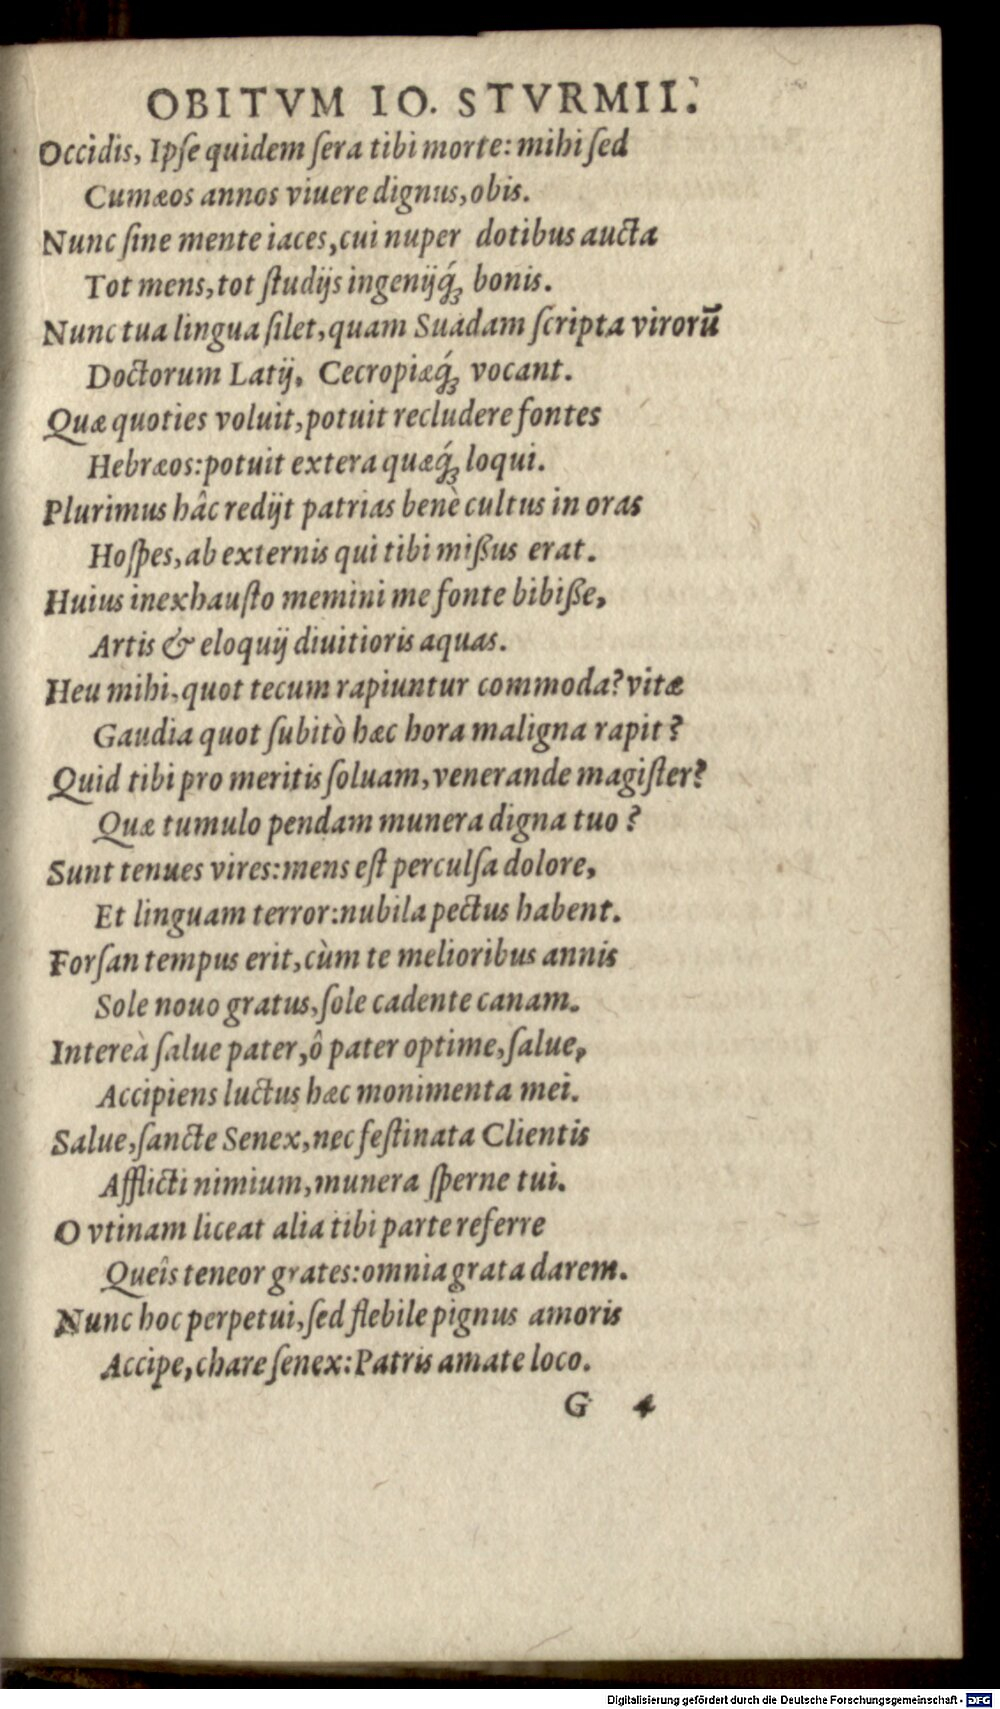 OBITVM IO. STVRMII.
Occidis, Ipſe quidem ſera tibi morte: mihi ſed
Cumæos annos viuere dignus, obis.
Nunc ſine mente iaces, cui nuper dotibus aucta
Tot mens, tot ſtudijs ingenijq́; bonis.
Nunc tua lingua ſilet, quam Suadam ſcripta virorū
Doctorum Latij, Cecropiæq́; vocant.
Quæ quoties voluit, potuit recludere fontes
Hebræos: potuit extera quæq́; loqui.
Plurimus hâc redijt patrias benè cultus in oras
Hoſpes, ab externis qui tibi miſſus erat.
Huius inexhauſto memini me fonte bibiſſe,
Artis & eloquij diuitioris aquas.
Heu mihi, quot tecum rapiuntur commoda? vitæ
Gaudia quot ſubitò hæc hora maligna rapit?
Quid tibi pro meritis ſoluam, venerande magiſter?
Quæ tumulo pendam munera digna tuo?
Sunt tenues vires: mens eſt perculſa dolore,
Et linguam terror: nubila pectus habent.
Forſan tempus erit, cùm te melioribus annis
Sole nouo gratus, ſole cadente canam.
Intereà ſalue pater, ô pater optime, ſalue,
Accipiens luctus hæc monimenta mei.
Salue, ſancte Senex, nec feſtinata Clientis
Afflicti nimium, munera ſperne tui.
O vtinam liceat alia tibi parte referre
Queîs teneor grates: omnia grata darem.
Nunc hoc perpetui, ſed flebile pignus amoris
Accipe, chare ſenex: Patris amate loco.
G 4
Digitalisierung gefördert durch die Deutsche Forschungsgemeinschaft - DFG